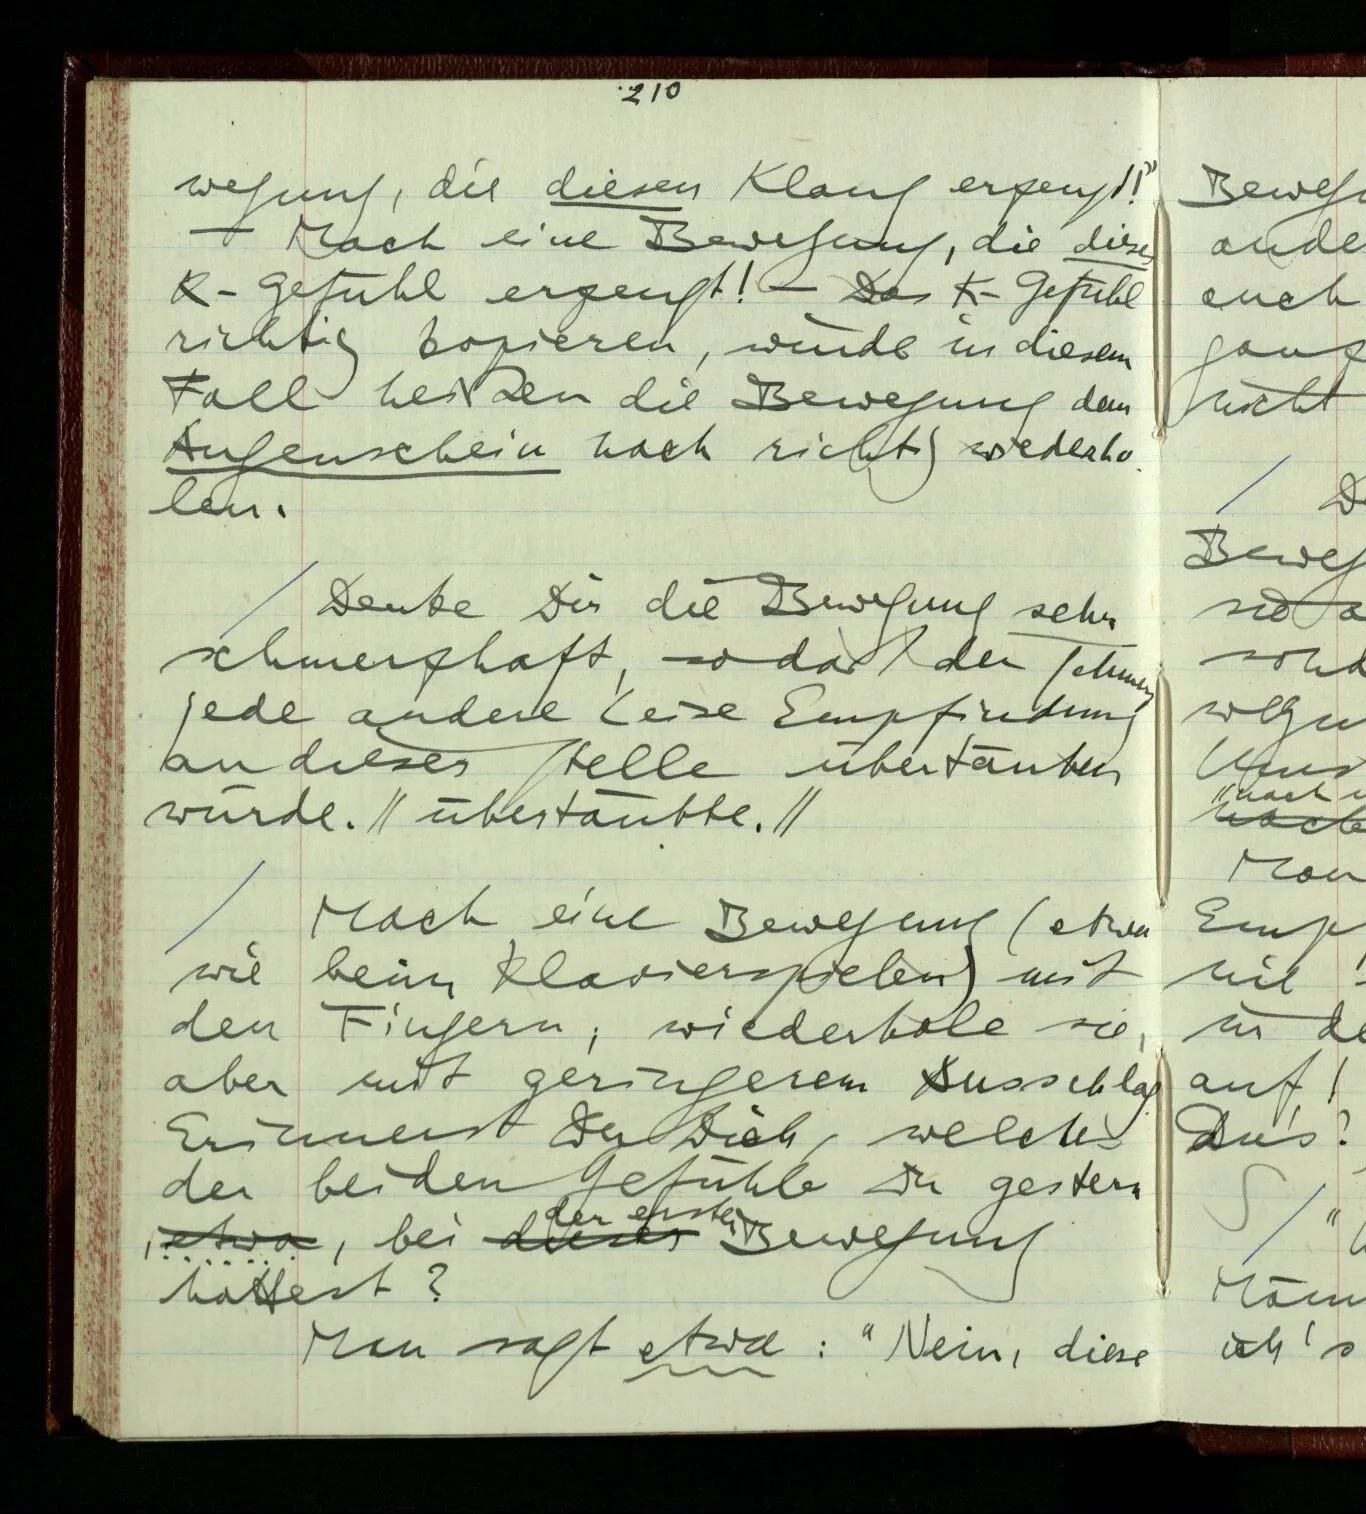 210
wegung, die diesen Klang erzeugt!"
— Mach eine Bewegung, die dieses
K-Gefühl erzeugt! — Das K-Gefühl
richtig kopieren, würde in diesem
Fall heißen die Bewegung dem
Augenschein nach richtig wiederho-
len.
/ Denke Dir die Bewegung sehr
schmerzhaft, sodaß der Schmerz
jede andere leise Empfindung
an dieser Stelle übertäuben
würde. // übertäubte. //
/ Mach eine Bewegung (etwa
wie beim Klavierspielen) mit
den Fingern; wiederhole sie,
aber mit geringerem Ausschlag
Erinnerst Du Dich, welches
der beiden Gefühle Du gestern
, etwa, bei dieser der ersten Bewegung
hattest?
Man sagt etwa: "Nein, diese
Bewegu
ande
auch
ganz
nicht
/ De
Beweg
sie a
sond
wegu
"nach u
nach
Man
Emp
nie
in de
auf!
Du's?
/ "
ich's